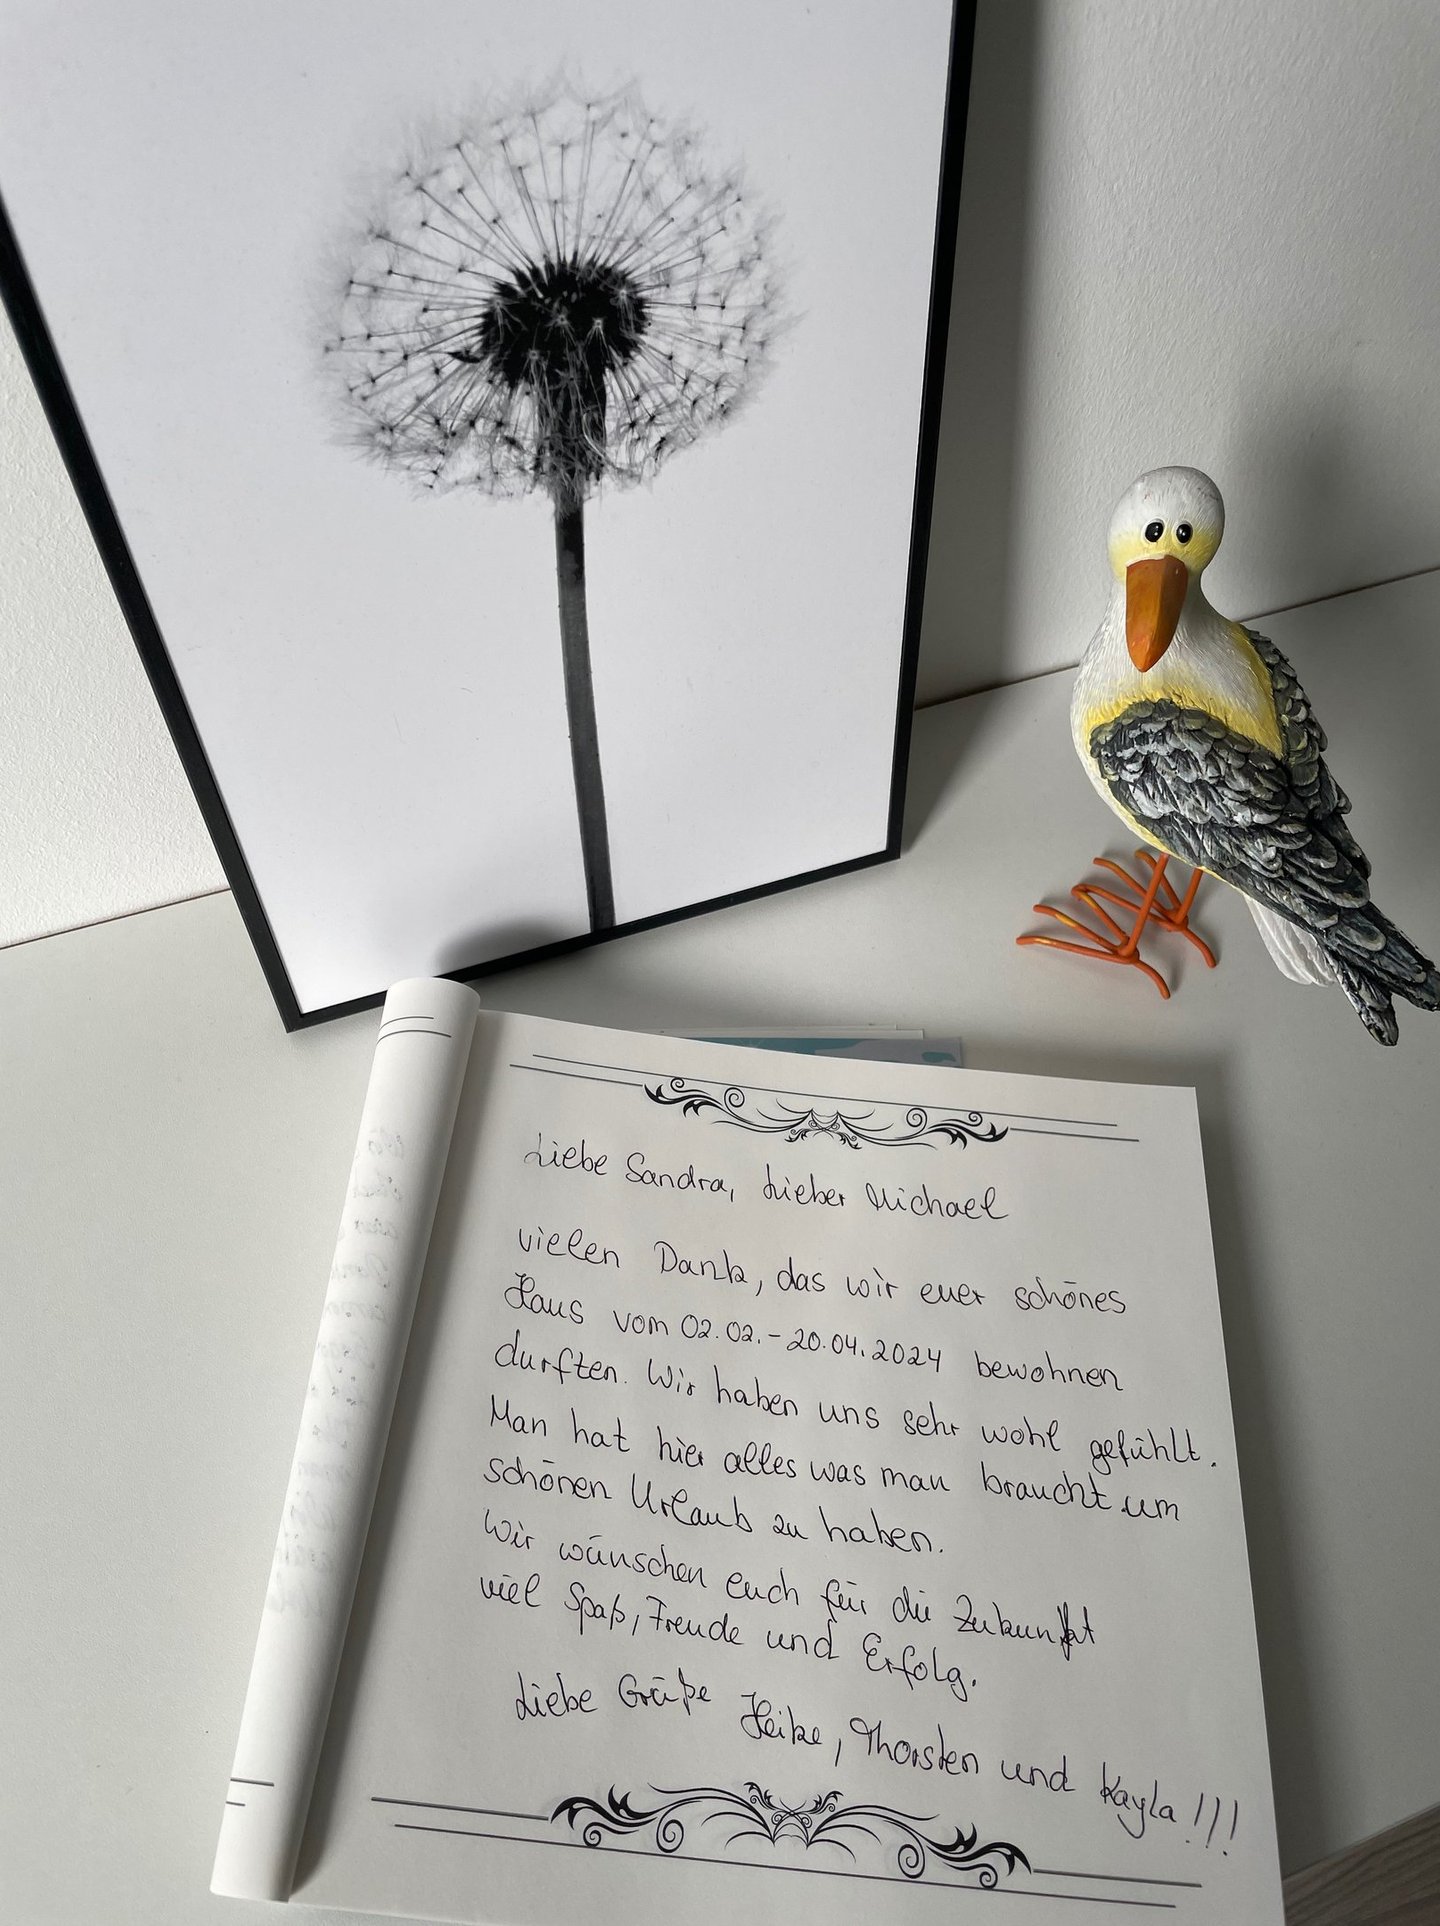 Liebe Sandra, Lieber Michael
vielen Dank, das wir euer schönes
Haus vom 02.02.-20.04.2024 bewohnen
durften. Wir haben uns sehr wohl gefühlt.
Man hat hier alles was man braucht um
schönen Urlaub zu haben.
Wir wünschen euch für die Zukunft
viel Spaß, Freude und Erfolg.
Liebe Grüße Heike, Thorsten und Kayla!!!